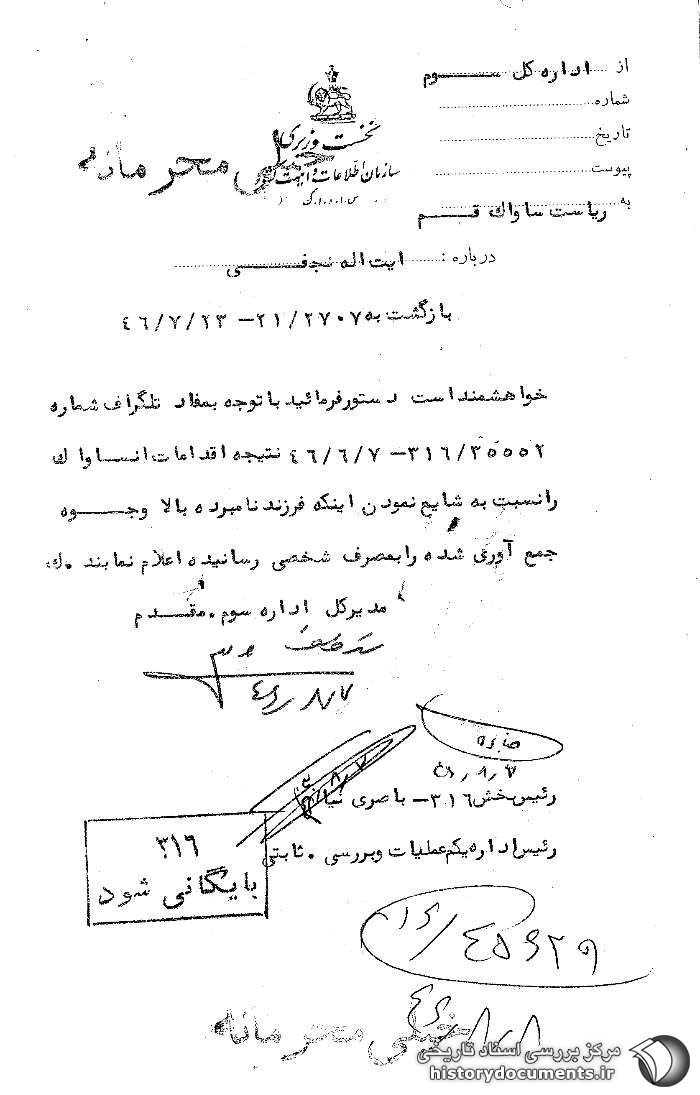 از اداره کل ســـوم
شماره
تاریخ
پیوست
نخست وزیری
سازمان اطلاعات و امنیت کشور
س.ا.و.ا.ک
خیلی محرمانه
به ریاست ساواک قـــم
درباره : ایت اله نجفـــی
بازگشت به ۲۱/۲۷۰۷ – ۴۶/۷/۲۳
خواهشمند است دستور فرمائید با توجه بمفاد تلگراف شماره
نتیجه اقدامات انساواک ۴۶/۶/۷ –
را نسبت به شایع نمودن اینکه فرزند نامبرده بالا وجـــوه
جمع آوری شده را بمصرف شخصی رسانیده اعلام نمایند . ک
مدیرکل اداره سوم . مقـــدم
۴۶/۸/۷
رئیس بخش ۳۱۶ –
رئیس اداره یکم عملیات و بررسی . ثابتی
۳۱۶
بایگانی شود
خیلی محرمانه
مرکز بررسی اسناد تاریخی
historydocuments.ir